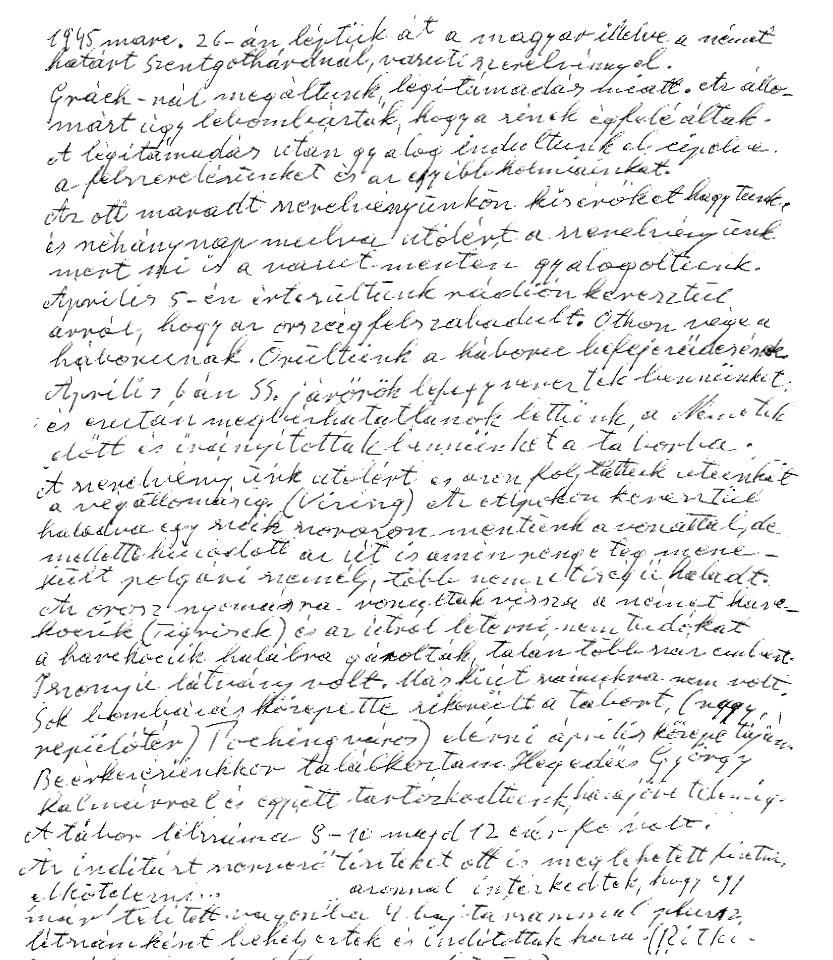 1945 marc. 26-án léptük át a magyar illetve a német
határt Szentgothárdnál, vasuti szerelvénnyel.
Grách-nál megáltunk, légitámadás miatt. Az állo-
mást úgy lebombázták, hogy a sínek égfelé áltak.
A légitámadás után gyalog indultunk el cipelve
a felszerelésünket és az egyébb holmiainkat.
Az ott maradt szerelvényünkön kisérőket hagytunk,
és néhány nap mulva utólért a szerelvényünk
mert mi is a vasut mentén gyalogoltunk.
Április 5-én értesültünk rádión keresztül
arról, hogy az ország felszabadult. Othon vége a
háborunak. Örültünk a háboru befejeződésének
Április 6 án SS. járőrök lefegyverezték bennünket,
és ezután megbízhatatlanok lettünk, a Németek
előtt és irányítottak bennünket a táborba.
A szerelvényünk utolért és azon folytattuk utunkat
a végállomásig. (Viring) Az Alpokon keresztül
haladva egy szük szoroson mentünk a vonattal, de
mellette húzódott az út is amin rengeteg mene-
kült polgári személy, több nemzetiségü haladt.
Az orosz nyomásra vonultak vissza a német harc-
kocsik (Tigrisek) és az útról letérni nem tudókat
a harckocsik halálra gázolták, talán több száz embert.
Iszonyú látvány volt. Másként számukra nem volt.
Sok bombázás közepette sikerült a tábort, (nagy
repülőtér) Poching város) elérni április közepe táján.
Beérkezésünkkor találkoztam Hegedüs György
Kálmánnal és együtt tartózkodtunk hazajövetelemig.
A tábor létszáma 8-10 majd 12 ezer fő volt.
Az indítást szervező tiszteket ott is meg lehetett fizetni,
elkötelezni... azonnal intézkedtek, hogy egy
már telített vagonba 4 bajtársammal plusz
létszámként behelyeztek és indítottak haza. (Ritki-